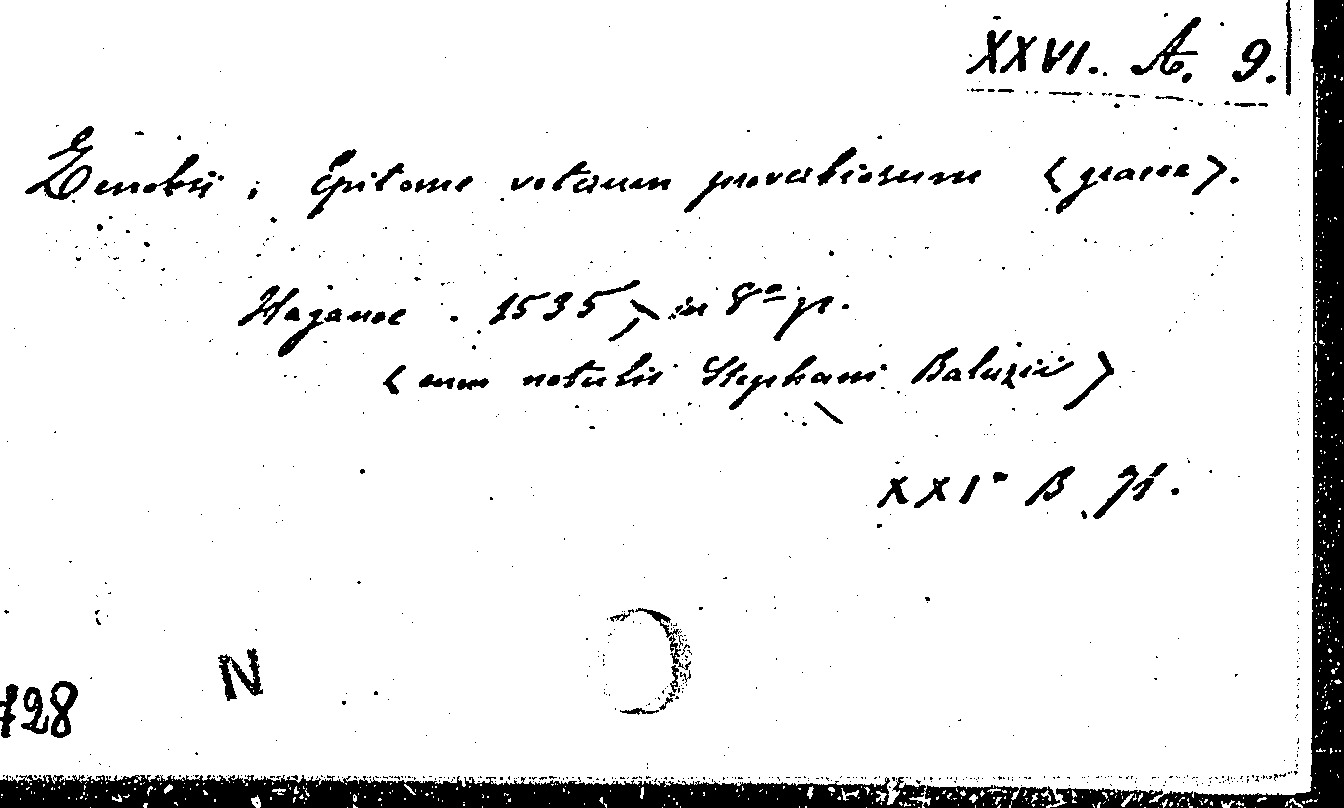 XXVI. A. 9.
Zenobii, Epitome veterum proverbiorum (graece).
Haganoe. 1535, in 8º p.
(cum notulis Stephani Baluzii)
XXI. B
N
728